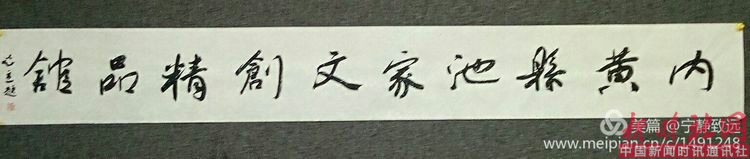 内黄縣池家文創精品舘
美篇 @宁静致远
www.meipian.cn/c/1491248
中国新闻时讯通讯社